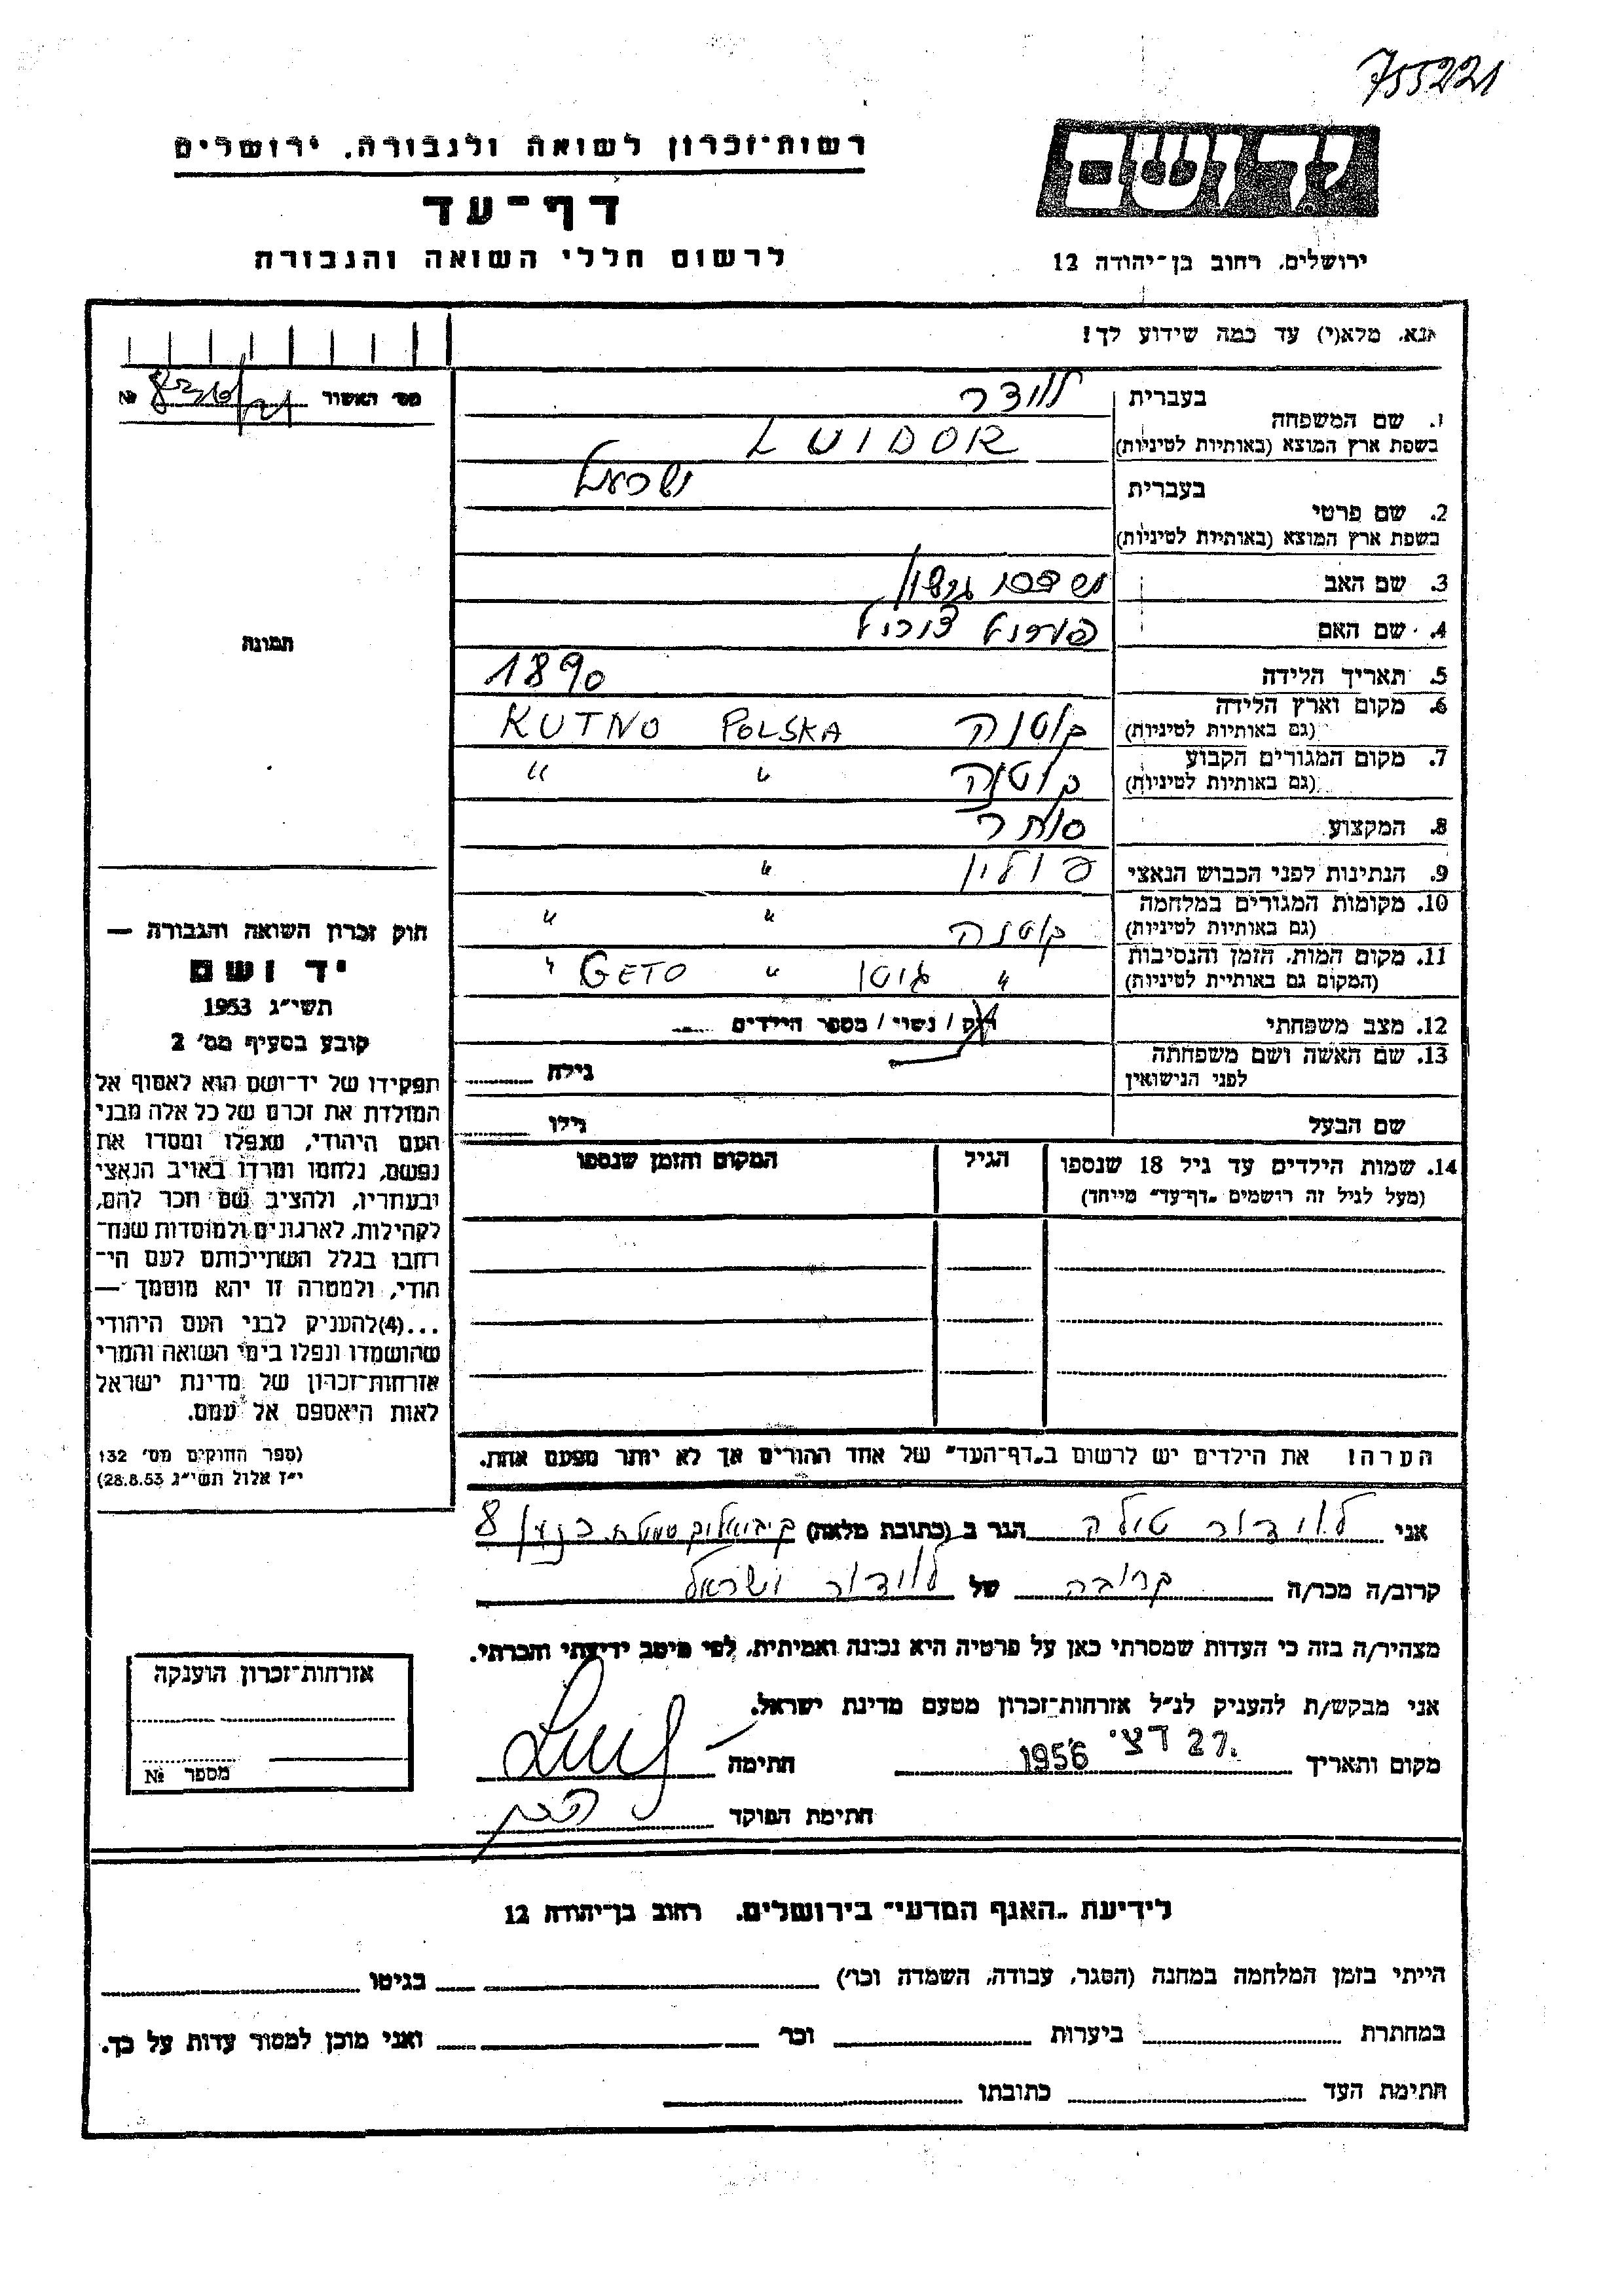 755221
רשות־זכרון לשואה ולגבורה, ירושלים
דף־עד
לרשום חללי השואה והגבורה
יד ושם
ירושלים, רחוב בן־יהודה 12
אנא, מלא(י) עד כמה שידוע לך!
מס׳ האשור №
1. שם המשפחה
בעברית
לוידר
בשפת ארץ המוצא (באותיות לטיניות)
LUIDOR
2. שם פרטי
בעברית
ישראל
בשפת ארץ המוצא (באותיות לטיניות)
3. שם האב
4. שם האם
5. תאריך הלידה 1890
6. מקום וארץ הלידה
(גם באותיות לטיניות)
קוטנה POLSKA KUTNO
7. מקום המגורים הקבוע
(גם באותיות לטיניות)
קוטנה " "
8. המקצוע סוחר
9. הנתינות לפני הכבוש הנאצי פולין "
10. מקומות המגורים במלחמה
(גם באותיות לטיניות)
קוטנה " "
11. מקום המות, הזמן והנסיבות
(המקום גם באותיות לטיניות)
" גיטו " GETO "
12. מצב משפחתי רוק / נשוי / מספר הילדים
13. שם האשה ושם משפחתה
לפני הנישואין
גילה
שם הבעל גילו
14. שמות הילדים עד גיל 18 שנספו
(מעל לגיל זה רושמים „דף־עד״ מיוחד)
הגיל
המקום והזמן שנספו
תמונה
חוק זכרון השואה והגבורה —
יד ושם
תשי״ג 1953
קובע בסעיף מס׳ 2
תפקידו של יד־ושם הוא לאסוף אל
המולדת את זכרם של כל אלה מבני
העם היהודי, שנפלו ומסרו את
נפשם, נלחמו ומרדו באויב הנאצי
ובעוזריו, ולהציב שם וזכר להם,
לקהילות, לארגונים ולמוסדות שנח־
רחבו בגלל השתייכותם לעם הי־
הודי, ולמטרה זו יהא מוסמך —
...(4)להעניק לבני העם היהודי
שהושמדו ונפלו בימי השואה והמרי
אזרחות־זכרון של מדינת ישראל
לאות היאספם אל עמם.
(ספר החוקים מס׳ 132
י״ז אלול תשי״ג 28.8.53)
הערה! את הילדים יש לרשום ב„דף־העד״ של אחד ההורים אך לא יותר מפעם אחת.
אני לוידור טולה הגר ב (כתובת מלאה) 8
קרוב/ה מכר/ה קרובה של לוידור ישראל
מצהיר/ה בזה כי העדות שמסרתי כאן על פרטיה היא נכונה ואמיתית, לפי מיטב ידיעתי והכרתי.
אני מבקש/ת להעניק לנ״ל אזרחות־זכרון מטעם מדינת ישראל.
מקום ותאריך 27 דצ׳ 1956 חתימה
חתימת הפוקד
אזרחות־זכרון הוענקה
מספר №
לידיעת „האגף המדעי״ בירושלים, רחוב בן־יהודה 12
הייתי בזמן המלחמה במחנה (הסגר, עבודה, השמדה וכו׳) בגיטו
במחתרת ביערות וכו׳ ואני מוכן למסור עדות על כך.
חתימת העד כתובתו